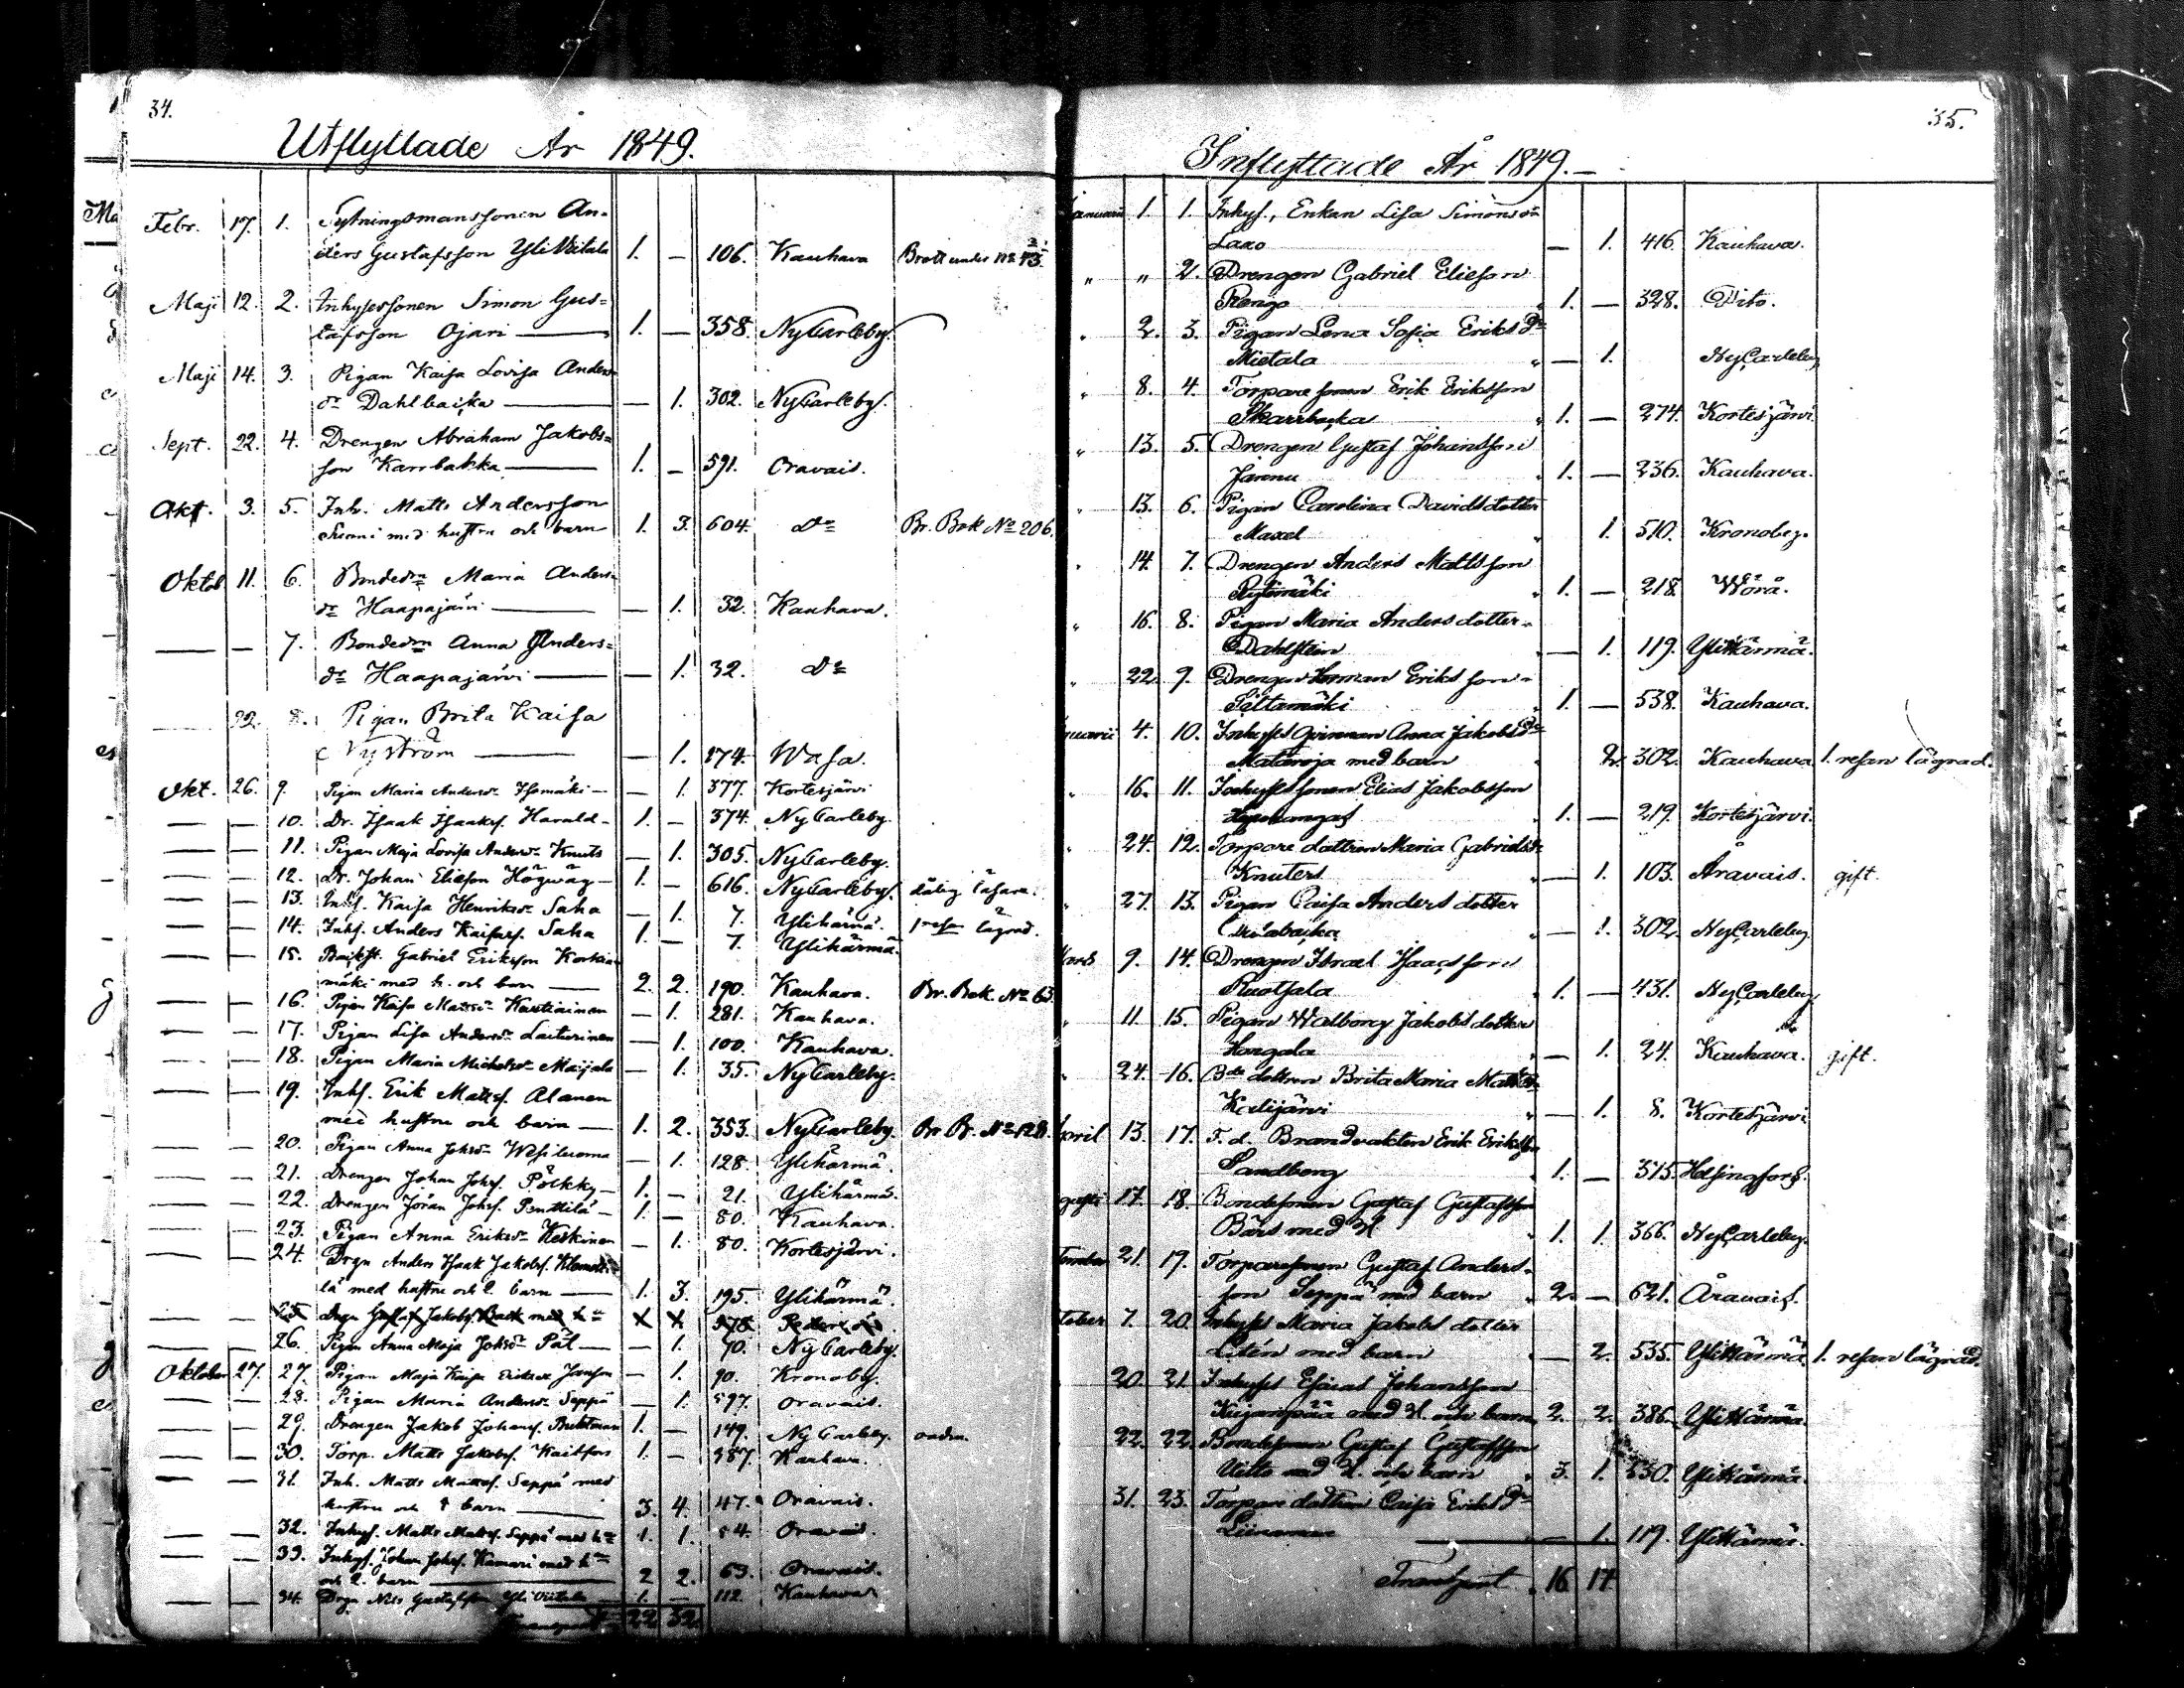 34.
Utflyttade År 1849.
Febr. 17. 1. Sytningsmanssonen An-
ders Gustafsson Yli Viitala 1. — 106. Kauhava
Maji 12. 2. Inhysessonen Simon Gus=
tafsson Ojari — 1. — 358. NyCarleby.
Maji 14. 3. Pigan Kaisa Lovisa Anders
dr Dahlbacka — — 1. 302. NyCarleby.
Sept. 22. 4. Drengen Abraham Jakobs=
son Karrbakka — 1. — 591. Oravais.
Okt. 3. 5. Inh. Matts Andersson
Suoni med hustru och barn 1. 3. 604. Do Br. Bok No 206.
Oktob 11. 6. Bondedn Maria Anders=
dr Haapajärvi — — 1. 32. Kauhava.
— — 7. Bondedn Anna Anders=
dr Haapajärvi — — 1. 32. Do
— 22. 8. Pigan Brita Kaisa
Nyström — — 1. 274. Wasa.
Okt. 26. 9. Pigan Maria Andersdr Isomäki — — 1. 377. Kortesjärvi
— — 10. Dr. Isaak Isaaks. Harald — 1. — 374. NyCarleby.
— — 11. Pigan Maja Lovisa Andersdr Knuts — 1. 305. NyCarleby.
— — 12. Dr. Johan Eliesson Högwäg — 1. — 616. NyCarleby. dålig läsare.
— — 13. Inhs. Kaisa Henriksdr Saha — 1. 7. Ylihärmä. 1 resan lägrad.
— — 14. Inhs. Anders Kaisas. Saha 1. — 7. Ylihärmä.
— — 15. Gabriel Eriksson
mäki med h. och barn — 2. 2. 190. Kauhava. Br. Bok. No 63
— — 16. Pigan Kaisa Mattsdr — 1. 281. Kauhava.
— — 17. Pigan Lisa Andersdr Laiturinen — 1. 100. Kauhava.
— — 18. Pigan Maria Michelsdr Maijala — 1. 35. NyCarleby.
— — 19. Inhs. Erik Mattss. Alanen
med hustru och barn — 1. 2. 353. NyCarleby. Br. B. No 128.
— — 20. Pigan Anna Johsdr Wesiluoma — 1. 128. Ylihärmä.
— — 21. Drengen Johan Johss. Pölkky — 1. — 21. Ylihärmä.
— — 22. Drengen Jöran Johss. Penttilä — 1. — 80. Kauhava.
— — 23. Pigan Anna Eriksdr Keskinen — 1. 80. Kortesjärvi.
— — 24. Drgn Anders Isaak Jakobs. Klemet
lä med hustru och 2. barn — 1. 3. 195. Ylihärmä.
— — 25. Drgn Gustaf Jakobs. med h
— — 26. Pigan Anna Maja Johsdr Pål — — 1. 70. NyCarleby.
Oktober 27. 27. Pigan Maja Kaisa Eriksdr Jansson — 1. 90. Kronoby.
— — 28. Pigan Maria Andersdr Seppä — 1. 597. Oravais.
— — 29. Drengen Jakob Johans. 1. — 149. NyCarleby.
— — 30. Torp. Matts Jakobs. Kaitfors 1. — 387. Kauhava.
— — 31. Inh. Matts Mattss. Seppä med
hustru och barn — 3. 4. 47. Oravais.
— — 32. Inhys. Matts Mattss. Seppä med h 1. 1. 54. Oravais.
— — 33. Inhys. Johan Johss. Kamari med h
och 2. barn — 2 2. 63. Oravais.
— — 34. Drgn Nils Gustafsson Yli Viitala — 1. — 112. Kauhava
22 32
35.
Inflyttade År 1849.—
Januarii 1. 1. Inhys., Enkan Lisa Simonsdr
Laxo — 1. 416. Kauhava.
" " 2. Drengen Gabriel Elieson
Rengo 1. — 328. Dito.
" 2. 3. Pigan Lena Sofia Eriksdr
Mietala — 1. NyCarleby
" 8. 4. Torparesonen Erik Eriksson
Skarrbacka 1. — 274. Kortesjärvi
" 13. 5. Drengen Gustaf Johansson
1. — 236. Kauhava.
" 13. 6. Pigan Carolina Davidsdotter
Maxel 1. 510. Kronoby.
" 14. 7. Drengen Anders Mattsson
1. — 218. Wörå.
" 16. 8. Pigan Maria Andersdotter
Dahlsten — 1. 119. YliHärmä.
" 22. 9. Drengen Herman Eriksson
1. — 538. Kauhava.
4. 10. Inhyses qvinnan Anna Jakobsdr
Mataroja med barn 2. 302. Kauhava 1. resan lägrad.
" 16. 11. Inhysessonen Elias Jakobsson
1. — 219. Kortesjärvi.
" 24. 12. Torparedottren Maria Gabrielsdr
Knuters — 1. 103. Åravais. gift.
" 27. 13. Pigan Caisa Andersdotter
— 1. 302. NyCarleby.
9. 14. Drengen Israel Isaacsson
Ruotsala 1. — 431. NyCarleby
" 11. 15. Pigan Walborg Jakobsdotter
— 1. 24. Kauhava. gift.
" 24. 16. Bde dottren Brita Maria Mattsdr
Kalijärvi — 1. 8. Kortesjärvi
April 13. 17. F. d. Brandvakten Erik Eriksson
Sandberg 1. — 315. Helsingfors.
17. 18. Bondesonen Gustaf Gustafsson
Bärs med H 1. 1. 366. NyCarleby.
21. 19. Torparesonen Gustaf Anders-
son Seppä med barn 2. — 621. Åravais.
7. 20. Inhyses Maria Jakobsdotter
Litén med barn — 2. 535. YliHärmä 1. resan lägrad.
20. 21. Inhyses Esaias Johansson
Kujanpää med H. och barn 2. 2. 386. YliHärmä.
22. 22. Bondesonen Gustaf Gustafsson
med H. och barn 3. 1. 530. YliHärmä.
31. 23. Torparedottren Caisa Eriksdr
— 1. 119. YliHärmä.
Transport 16 17